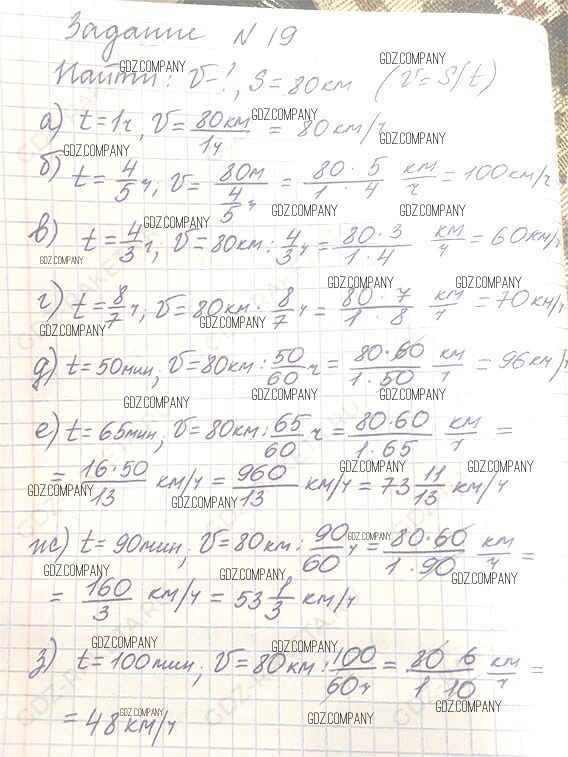 Задание N 19
Найти: V-?, S=80км (V=S/t)
а) t=1ч, V=80км/1ч = 80км/ч
б) t=4/5ч, V=80м/4/5ч = 80·5/1·4 км/ч = 100км/ч
в) t=4/3ч, V=80км:4/3ч = 80·3/1·4 км/ч = 60км/ч
г) t=8/7ч, V=80км·8/7ч = 80·7/1·8 км/ч = 70км/ч
д) t=50мин, V=80км:50/60ч = 80·60/1·50 км/ч = 96км/ч
е) t=65мин, V=80км:65/60ч = 80·60/1·65 км/ч =
= 16·50/13 км/ч = 960/13 км/ч = 73 11/13 км/ч
ж) t=90мин, V=80км:90/60ч = 80·60/1·90 км/ч =
= 160/3 км/ч = 53 1/3 км/ч
з) t=100мин; V=80км:100/60ч = 80 6/1 10 км/ч =
= 48км/ч
GDZ.COMPANY